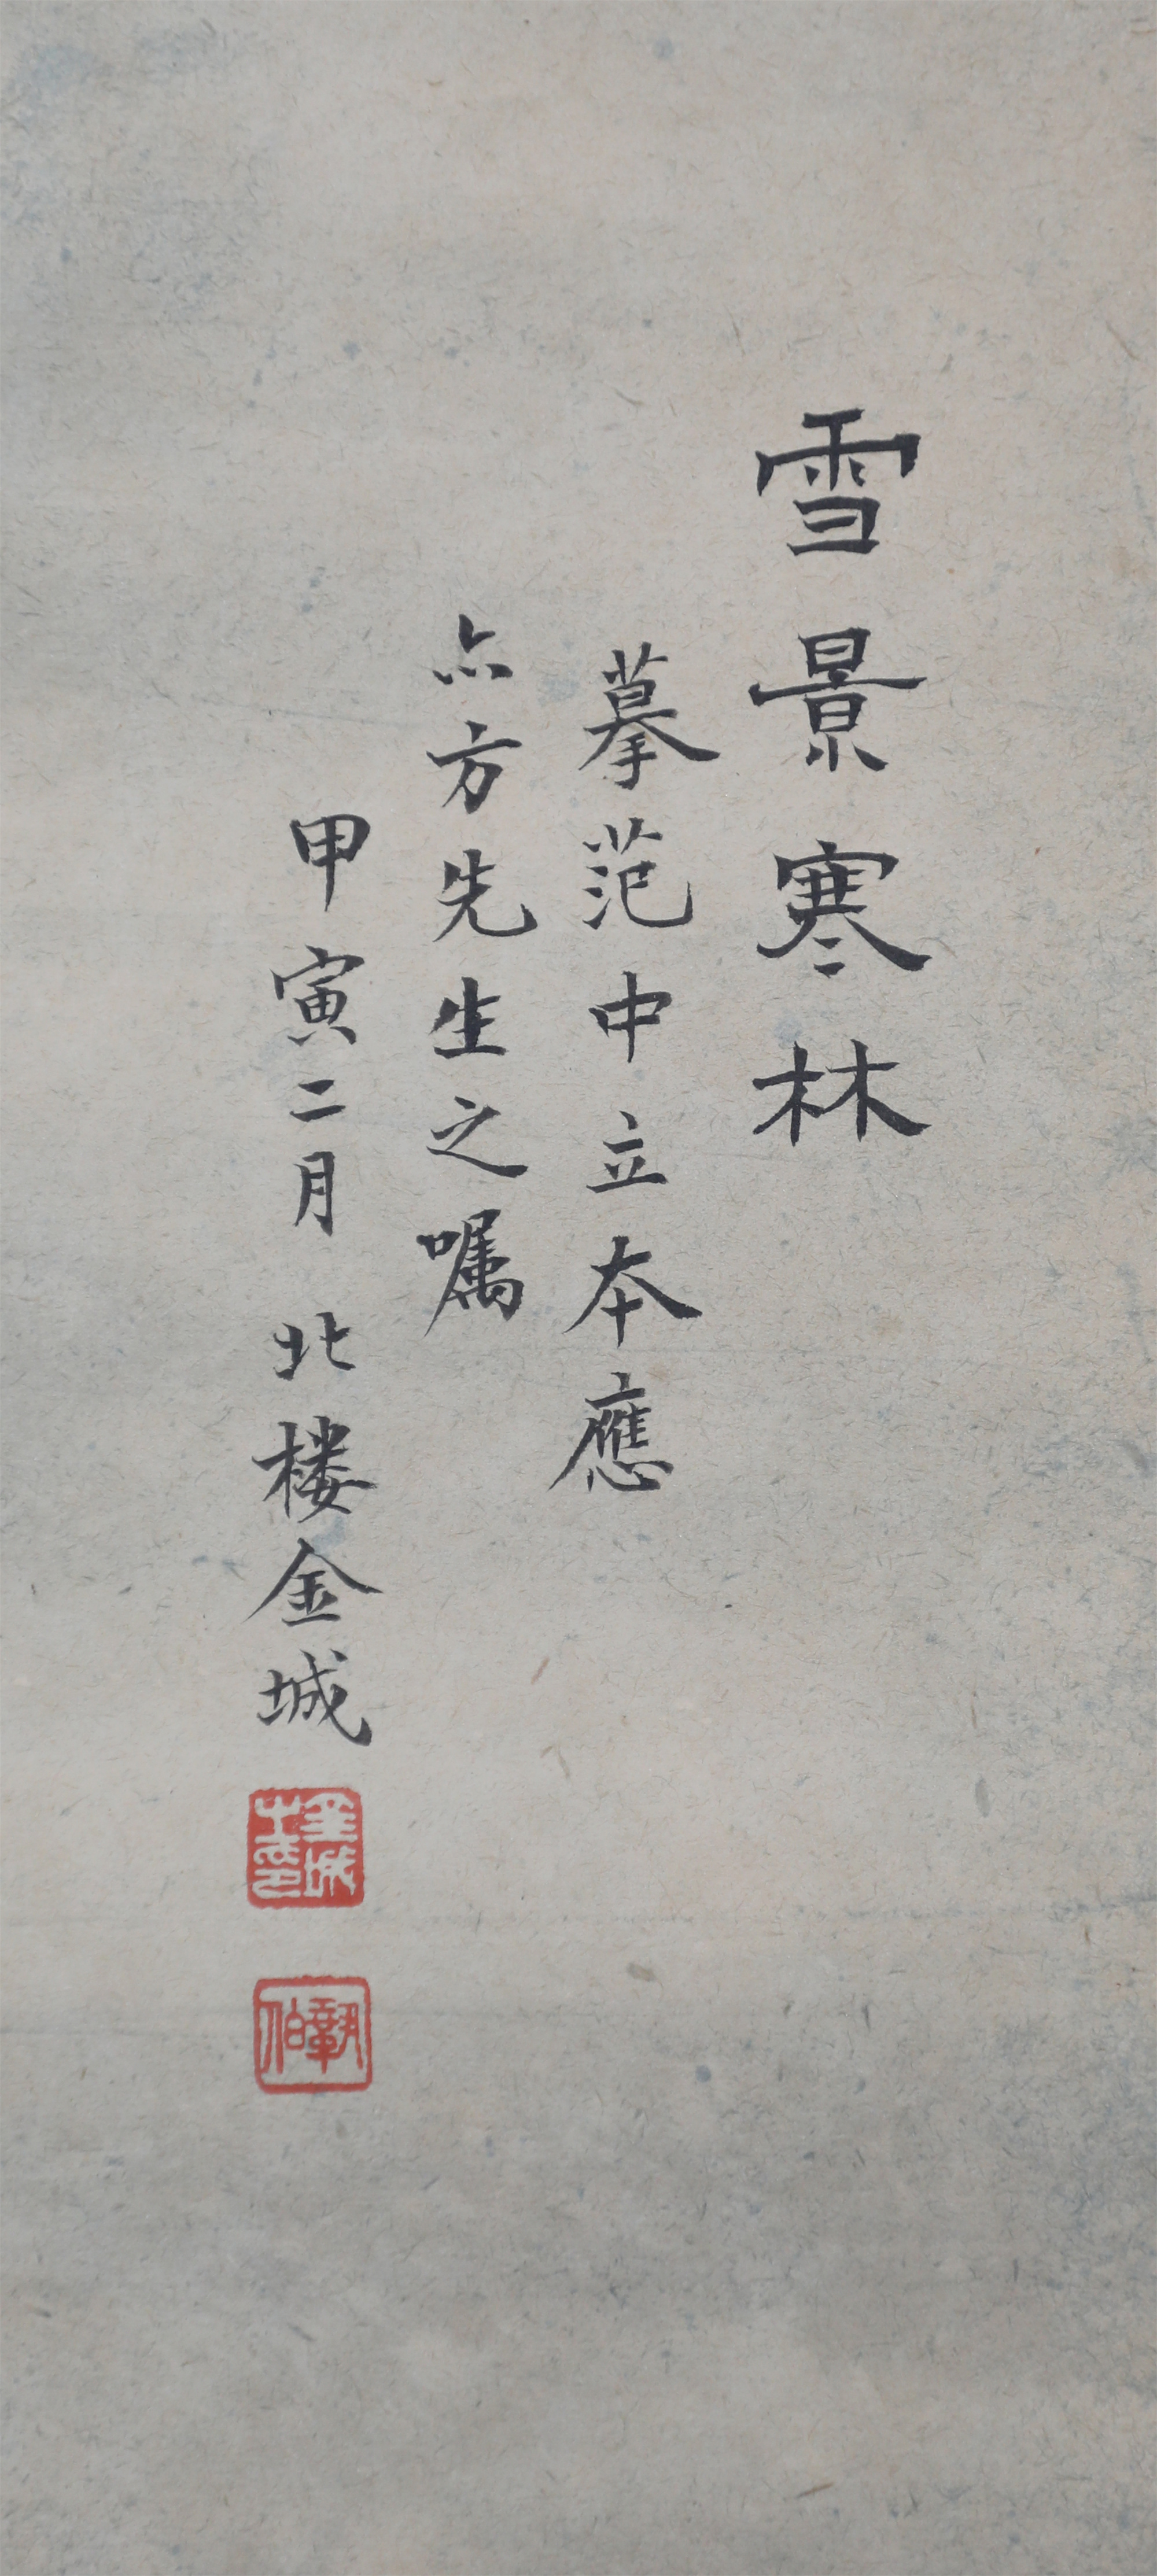 雪景寒林
摹范中立本應
亦方先生之嘱
甲寅二月 北楼金城
金城之印
鞏伯